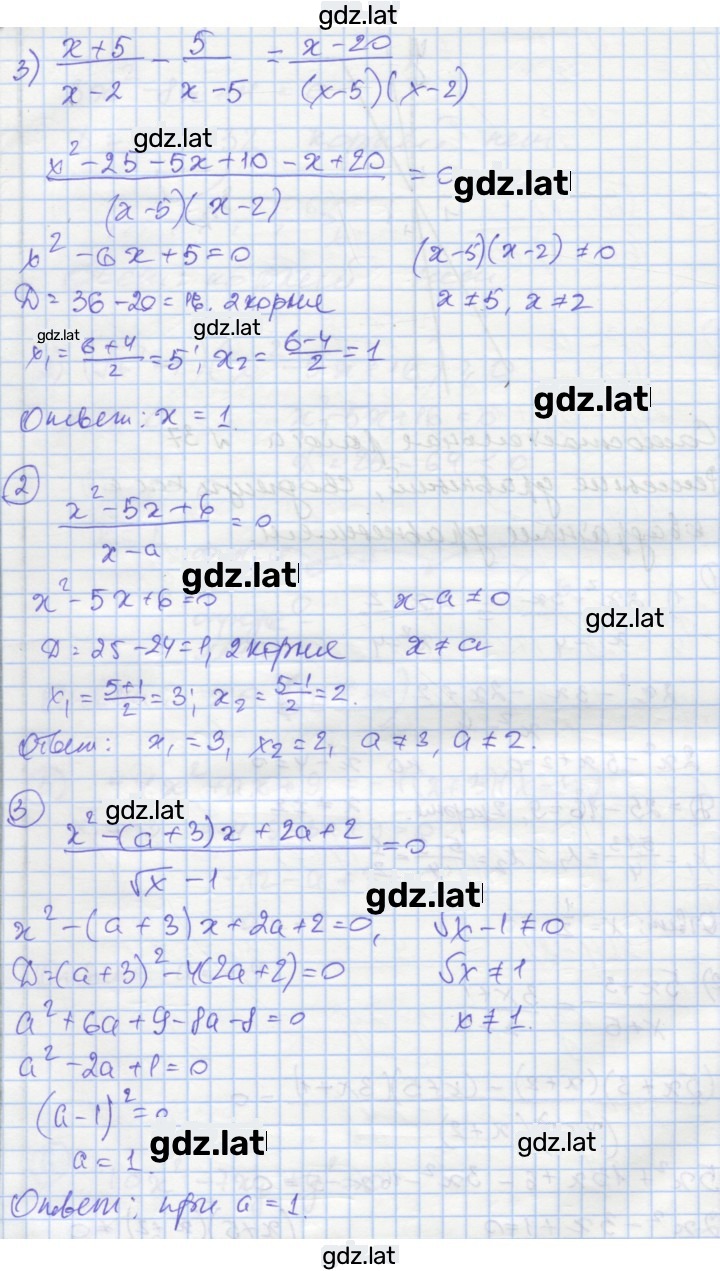 gdz.lat
3) (x+5)/(x-2) - 5/(x-5) = (x-20)/((x-5)(x-2))
gdz.lat
(x²-25-5x+10-x+20)/((x-5)(x-2)) =
gdz.lat
x²-6x+5=0 (x-5)(x-2)≠0
Д=36-20=16. 2 корня x≠5, x≠2
gdz.lat gdz.lat
x₁=(6+4)/2=5; x₂=(6-4)/2=1
gdz.lat
Ответ: x=1.
2 (x²-5x+6)/(x-a)=0
gdz.lat
x²-5x+6=0 x-a≠0
gdz.lat
Д=25-24=1, 2 корня x≠a
x₁=(5+1)/2=3; x₂=(5-1)/2=2.
Ответ: x₁=3, x₂=2, a≠3, a≠2.
gdz.lat
3 (x²-(a+3)x+2a+2)/(√x-1)=0
gdz.lat
x²-(a+3)x+2a+2=0, √x-1≠0
Д=(a+3)²-4(2a+2)=0 √x≠1
a²+6a+9-8a-8=0 x≠1.
a²-2a+1=0
(a-1)²=0
gdz.lat gdz.lat
a=1.
Ответ: при a=1.
gdz.lat